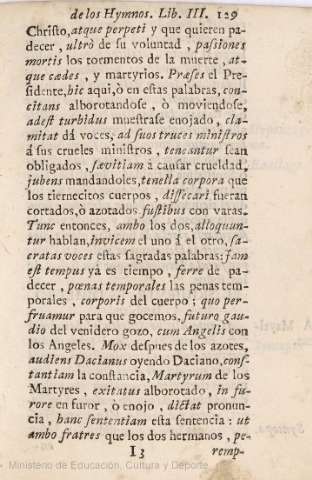 de los Hymnos. Lib. III. 129
Christo, atque perpeti y que quieren pa-
decer, ultrò de su voluntad, passiones
mortis los tormentos de la muerte, at-
que cædes, y martyrios. Præses el Pre-
sidente, hic aqui, ò en estas palabras, con-
citans alborotandose, ò moviendose,
adest turbidus muestrase enojado, cla-
mitat dá voces, ad suos truces ministros
á sus crueles ministros, teneantur sean
obligados, sævitiam à causar crueldad,
jubens mandandoles, tenella corpora que
los tiernecitos cuerpos, dissecari fueran
cortados, ò azotados fustibus con varas.
Tunc entonces, ambo los dos, alloquun-
tur hablan, invicem el uno á el otro, sa-
cratas voces estas sagradas palabras: Jam
est tempus yá es tiempo, ferre de pa-
decer, pœnas temporales las penas tem-
porales, corporis del cuerpo; quo per-
fruamur para que gocemos, futuro gau-
dio del venidero gozo, cum Angelis con
los Angeles. Mox despues de los azotes,
audiens Dacianus oyendo Daciano, cons-
tantiam la constancia, Martyrum de los
Martyres, exitatus alborotado, in fu-
rore en furor, ò enojo, dictat pronun-
cia, hanc sententiam esta sentencia: ut
ambo fratres que los dos hermanos, pe-
I3 remp-
Ministerio de Educación, Cultura y Deporte